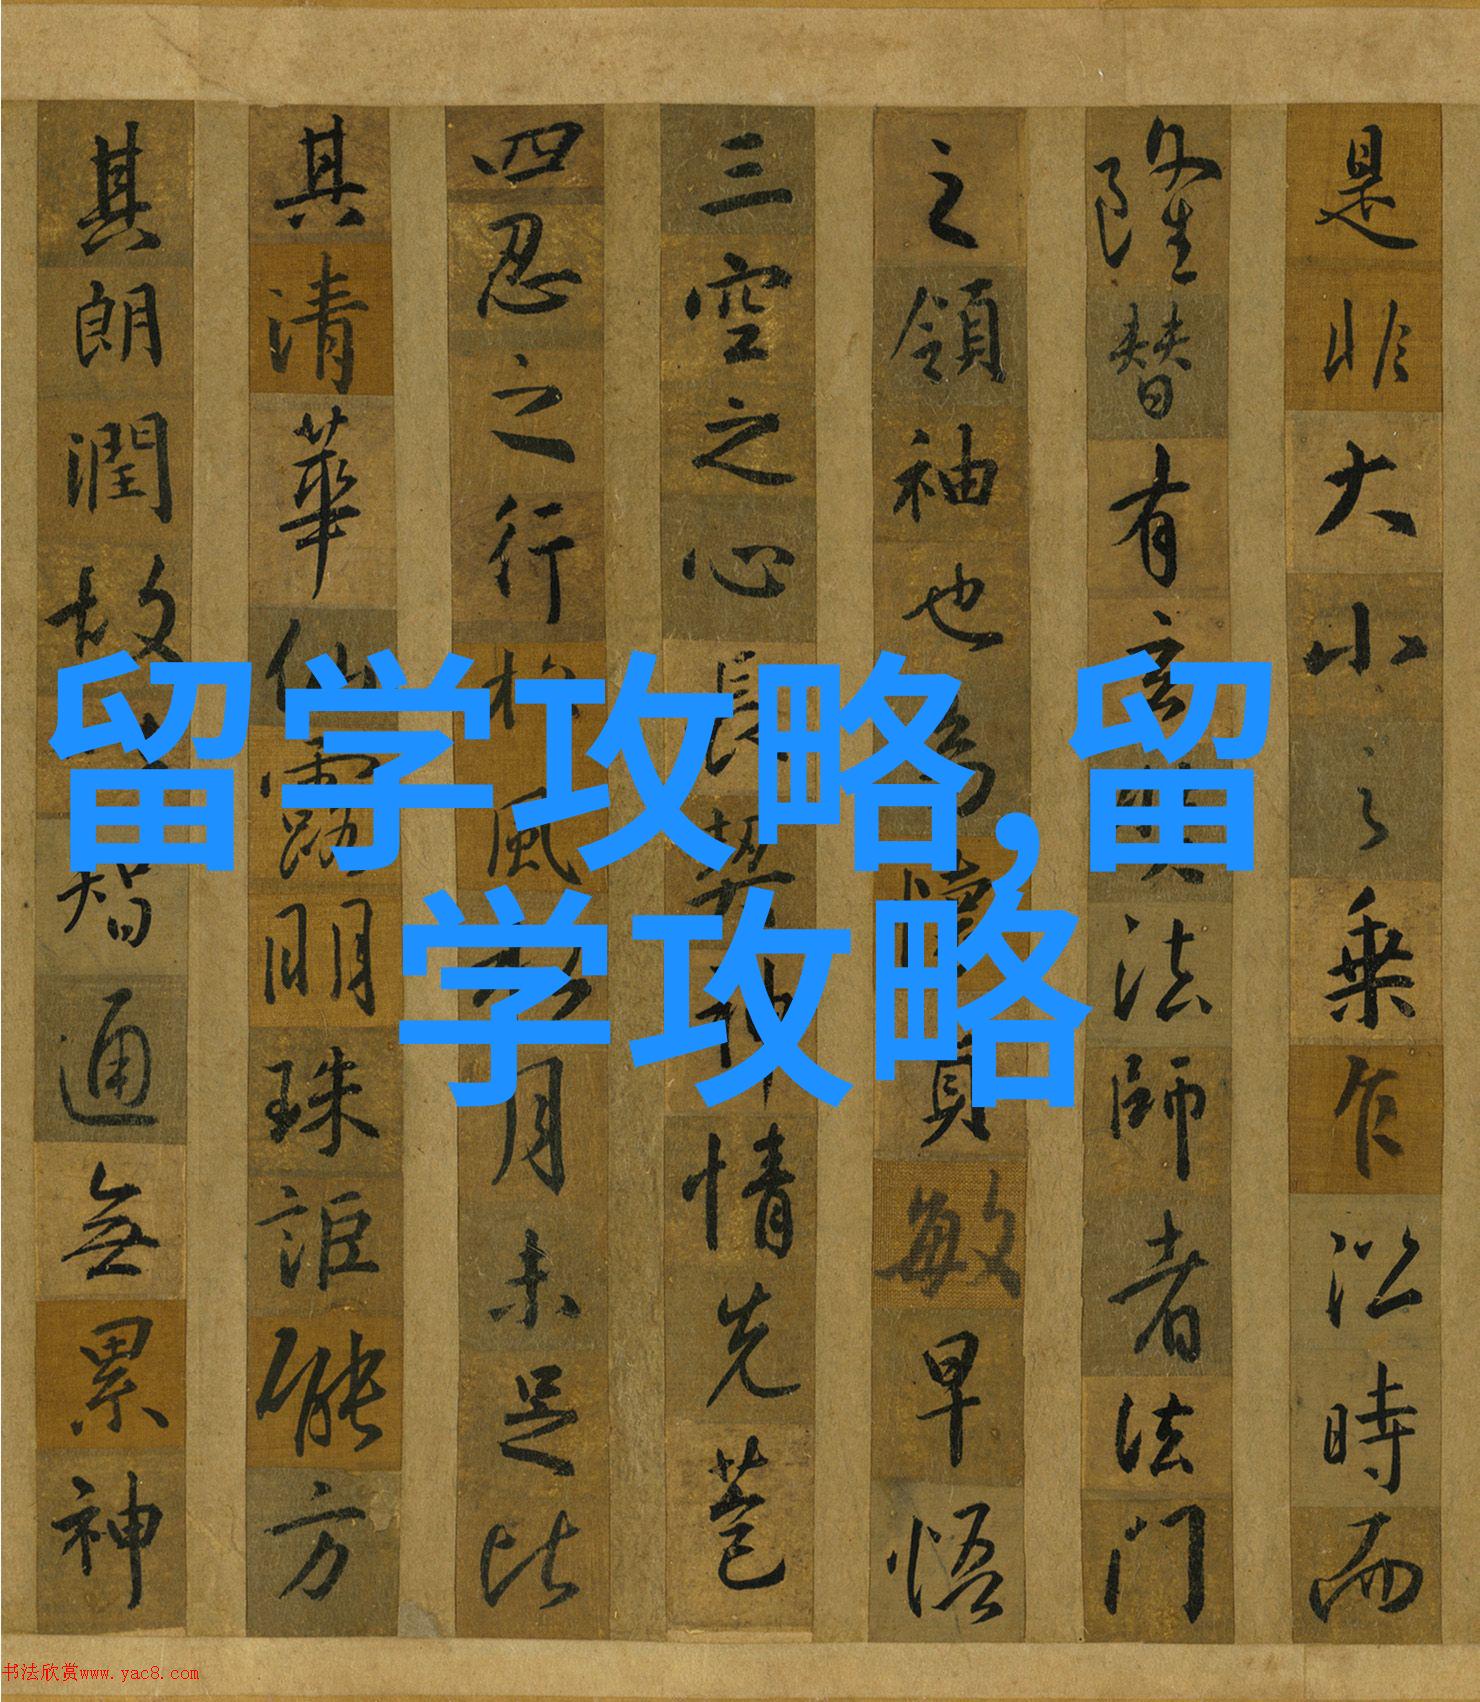 是非大小之乘乍沿時而
隆替有玄奘法師者法門
之領袖也幼懷貞敏早悟
三空之心長契神情先苞
四忍之行松風月未足比
其清華仙露明珠詎能方
其朗潤故智通無累神
留学攻略,留
学攻略
书法欣赏www.yac8.com